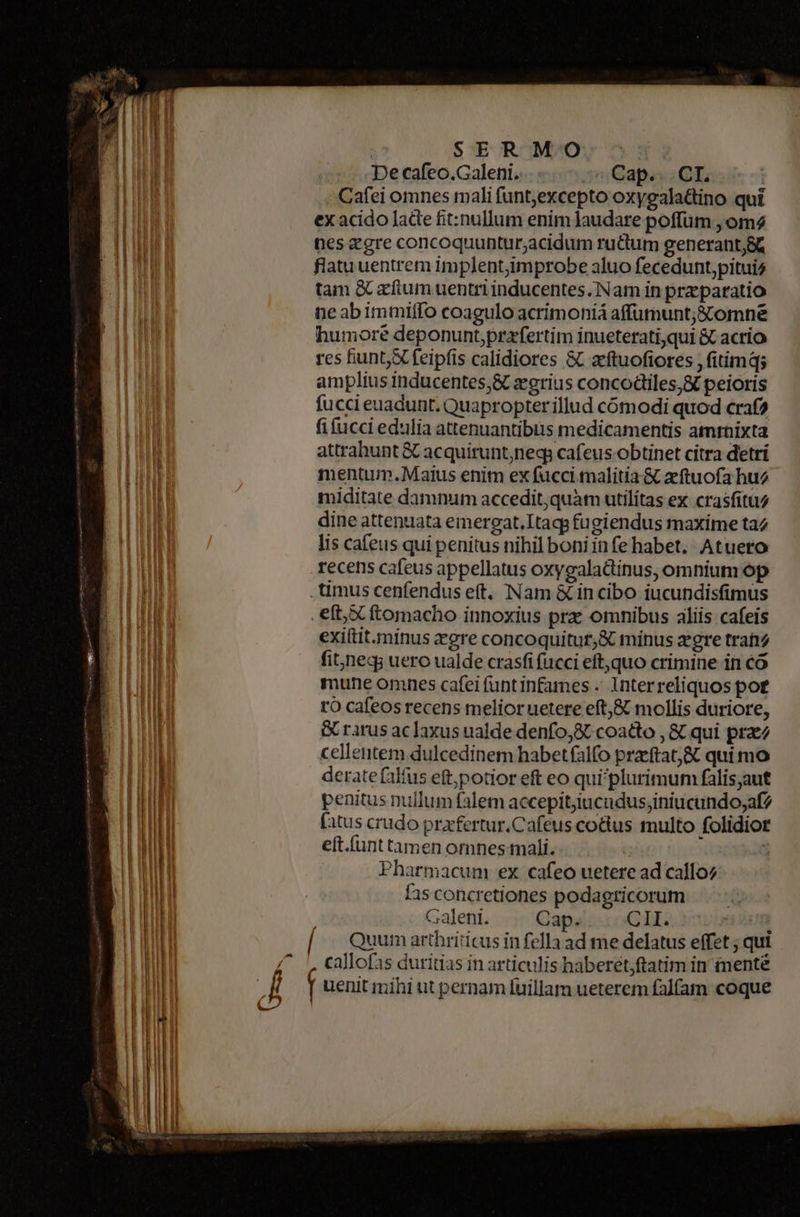 SERMO
De caſeo.Galeni. Cap. CI.
Caſei omnes mali ſunt,excepto oxygalactino qui
ex acido lacte fit:nullum enim laudare poſſum ,om⸗
nes ægre concoquuntur,acidum ructum generant,&
flatu uentrem implent,improbe aluo ſecedunt,pitui⸗
tam & æſtum uentri inducentes. Nam in præparatio
ne ab immiſſo coagulo acrimoniā aſſumunt,&omnē
humorē deponunt,præſertim inueterati,qui & acrio
res fiunt,& ſeipſis calidiores & æſtuoſiores , ſitimq;
amplius inducentes,& ægrius concoctiles,& peioris
ſucci euadunt. Quapropter illud cōmodi quod craſ⸗
ſi ſucci edulia attenuantibus medicamentis ammixta
attrahunt & acquirunt,neq; caſeus obtinet citra detri
mentum.Maius enim ex ſucci malitia & æſtuoſa hu⸗
miditate damnum accedit,quàm utilitas ex crasſitu⸗
dine attenuata emergat.Itaq; fugiendus maxime ta⸗
lis caſeus qui penitus nihil boni in ſe habet. At uero
recens caſeus appellatus oxygalactinus, omnium op
timus cenſendus eſt. Nam & in cibo iucundisſimus
eſt,& ſtomacho innoxius præ omnibus aliis caſeis
exiſtit.minus ægre concoquitur,& minus ægre tranſ⸗
fit,neq; uero ualde crasſi ſucci eſt,quo crimine in cō
mune omnes caſei ſunt infames . Inter reliquos por
rò caſeos recens melior uetere eſt,& mollis duriore,
& rarus ac laxus ualde denſo,& coacto , & qui præ⸗
cellentem dulcedinem habet falſo præſtat,& qui mo
derate ſalſus eſt,potior eſt eo qui plurimum ſalis,aut
penitus nullum ſalem accepit,iucūdus,iniucundo,aſ⸗
ſatus crudo præfertur.Caſeus coctus multo ſolidior
eſt.ſunt tamen omnes mali.
Pharmacum ex caſeo uetere ad callo⸗
ſas concretiones podagricorum
Galeni. Cap. CII.
Quum arthriticus in ſella ad me delatus eſſet , qui
calloſas duritias in articulis haberet,ſtatim in mentē
uenit mihi ut pernam ſuillam ueterem ſalſam coque